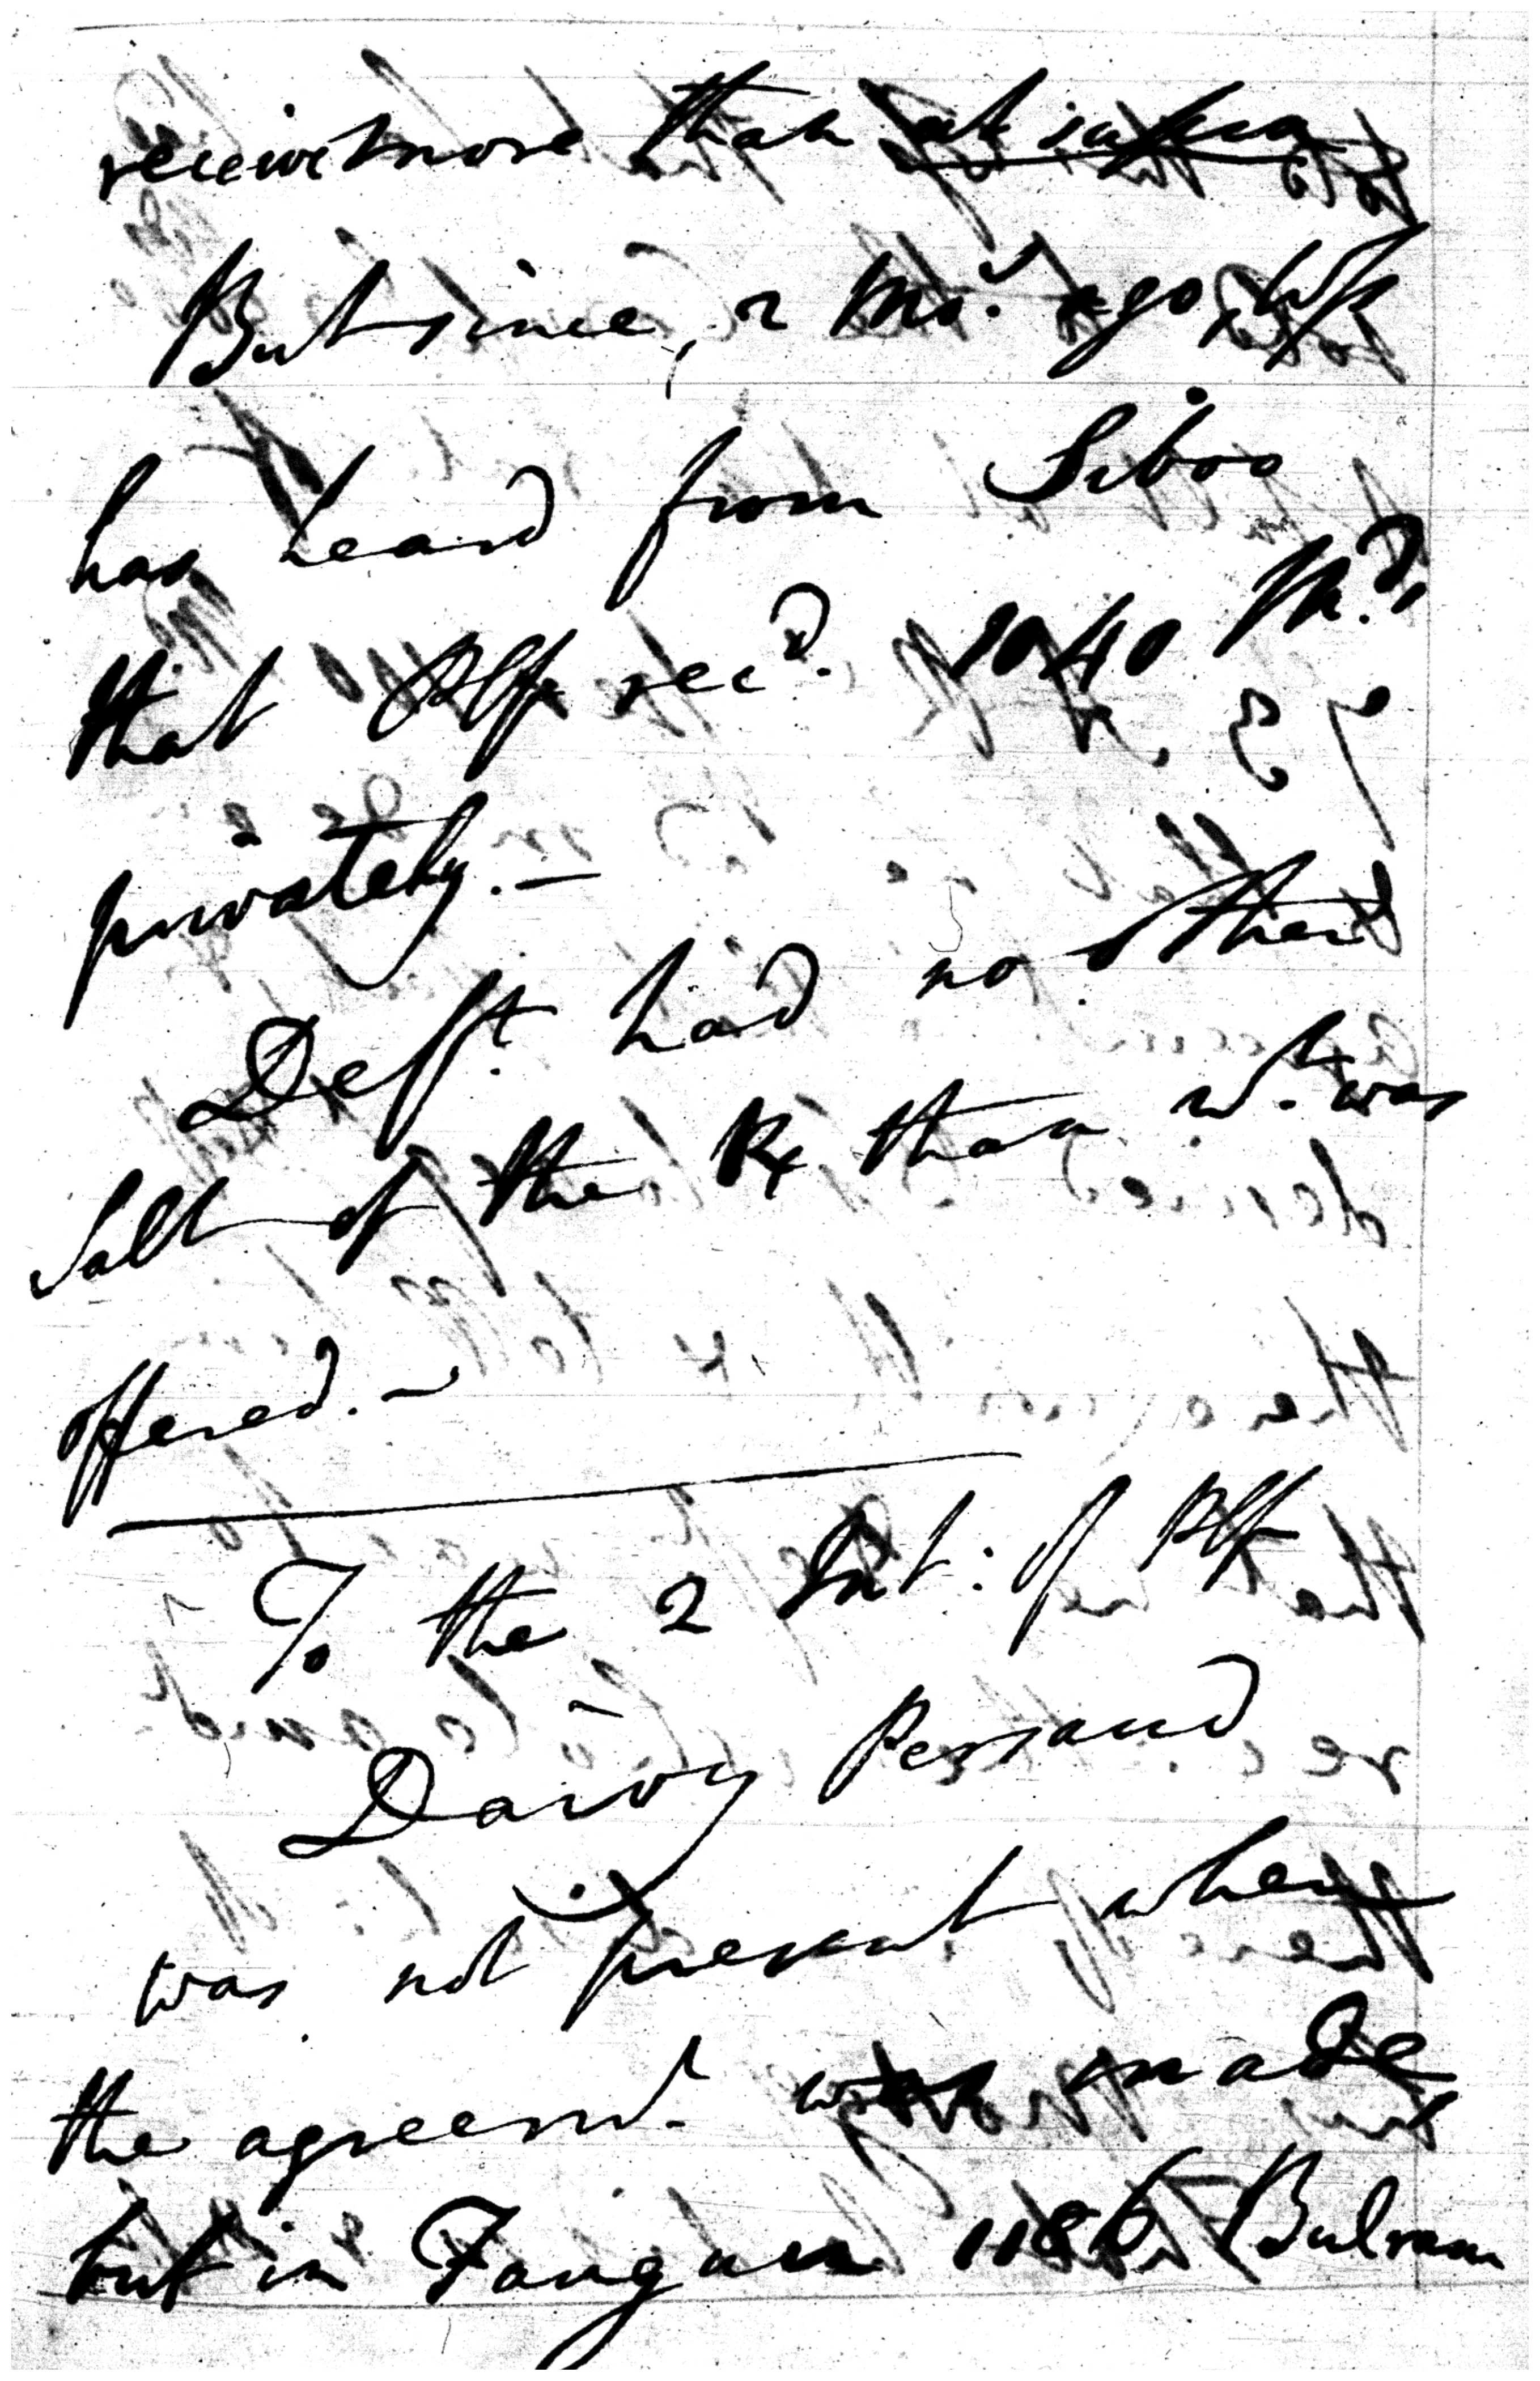 receive more than
But since, 2 mo.s ago, Wss
has heard from Siboo
that Plff rec.d 1040 M.ds
privately. —
Deft. had no other
Salt of the Kx than wt. was
offered. —
To the 2 Int: of Plff
Davoy Persaud
was not present when
the agreemt. was made
but in Faugun 1186 Bulram